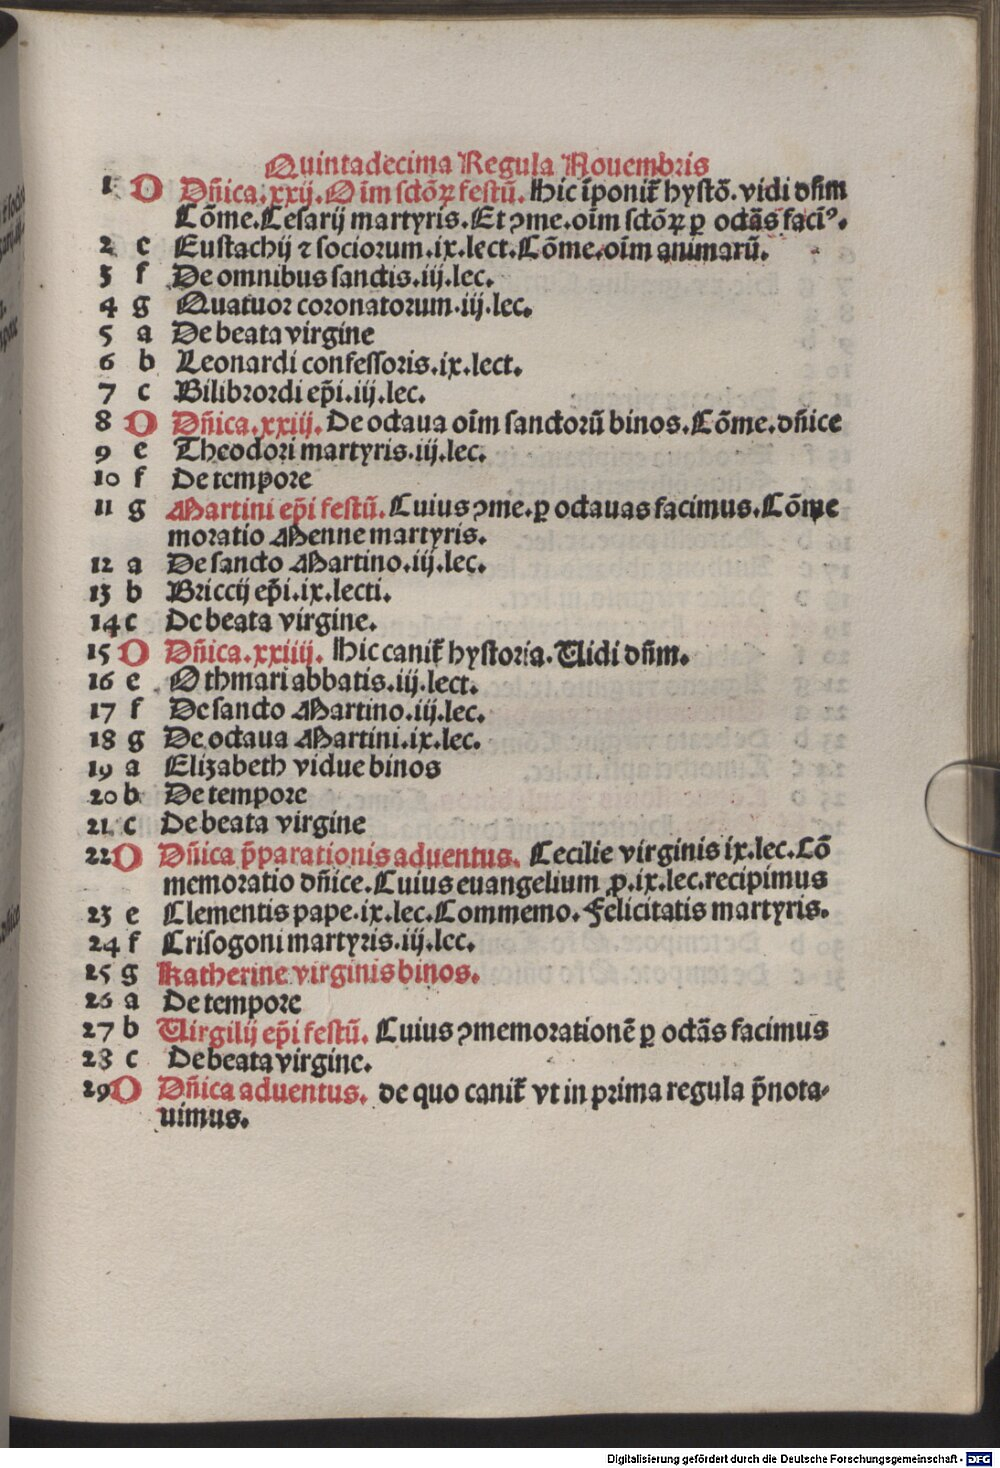 Quintadecima Regula Nouembris
1 D Dn̄ica.xxij.Oīm sctōꝝ festū.Hic īponit᷑ hystō.vidi dn̄m
Cōme.Cesarij martyris.Et ꝯme.oīm sctōꝝ ꝑ octās faciꝰ.
2 e Eustachij ⁊ sociorum.ix.lect.Cōme.oīm animarū.
3 f De omnibus sanctis.iij.lec.
4 g Quatuor coronatorum.iij.lec.
5 a De beata virgine
6 b Leonardi confessoris.ix.lect.
7 c Bilibrordi ep̄i.iij.lec.
8 D Dn̄ica.xxiij.De octaua oīm sanctorū binos.Cōme.dn̄ice
9 e Theodori martyris.iij.lec.
10 f De tempore
11 g Martini ep̄i festū.Cuius ꝯme.ꝑ octauas facimus.Cōme
moratio Menne martyris.
12 a De sancto Martino.iij.lec.
13 b Briccij ep̄i.ix.lecti.
14 c De beata virgine.
15 D Dn̄ica.xxiiij.Hic canit᷑ hystoria.Vidi dn̄m.
16 e Othmari abbatis.iij.lect.
17 f De sancto Martino.iij.lec.
18 g De octaua Martini.ix.lec.
19 a Elizabeth vidue binos
20 b De tempore
21 c De beata virgine
22 D Dn̄ica p̄parationis aduentus. Cecilie virginis ix.lec.Cō
memoratio dn̄ice.Cuius euangelium ꝓ.ix.lec.recipimus
23 e Clementis pape.ix.lec.Commemo.Felicitatis martyris.
24 f Crisogoni martyris.iij.lec.
25 g Katherine virginis binos.
26 a De tempore
27 b Virgilij ep̄i festū. Cuius ꝯmemorationē ꝑ octās facimus
28 c De beata virgine.
29 D Dn̄ica aduentus. de quo canit᷑ vt in prima regula p̄nota-
uimus.
Digitalisierung gefördert durch die Deutsche Forschungsgemeinschaft - DFG